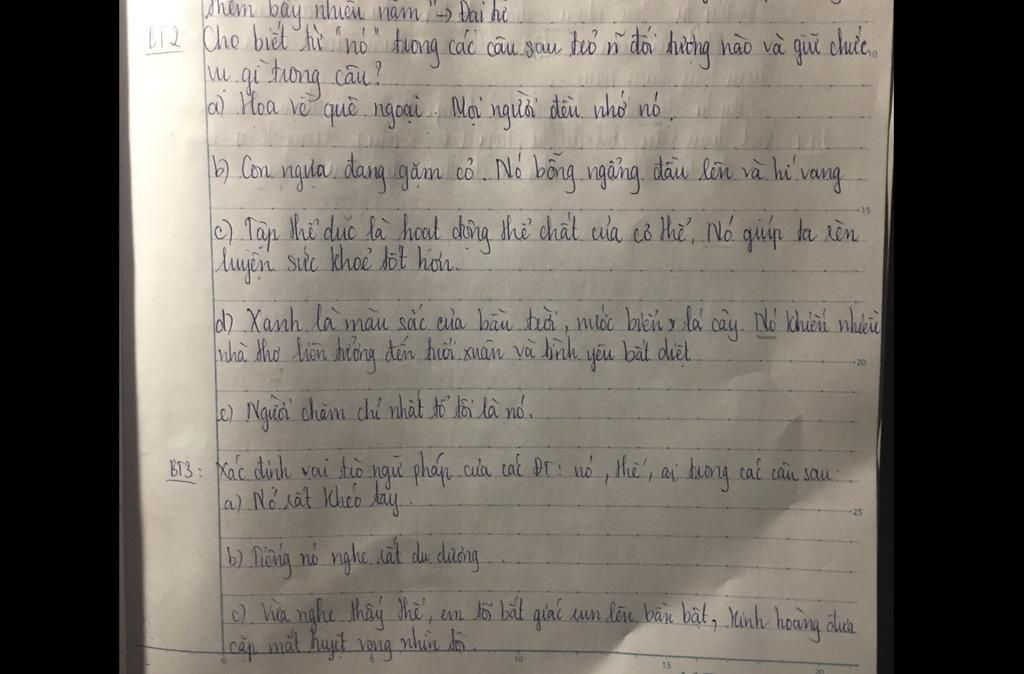 thêm bấy nhiêu năm" → Đại hi
BT2 Cho biết từ "nó" trong các câu sau trỏ ~ đối tượng nào và giữ chức
vụ gì trong câu?
a) Hoa về quê ngoại. Mọi người đều nhớ nó.
b) Con ngựa đang gặm cỏ. Nó bỗng ngẩng đầu lên và hí vang
c) Tập thể dục là hoạt động thể chất của cơ thể. Nó giúp ta rèn
luyện sức khoẻ tốt hơn.
d) Xanh là màu sắc của bầu trời, nước biển, lá cây. Nó khiến nhiều
nhà thơ liên tưởng đến tuổi xuân và tình yêu bất diệt
e) Người chăm chỉ nhất tổ tôi là nó.
BT3: Xác định vai trò ngữ pháp của các ĐT: nó, thế, ai trong các câu sau:
a) Nó rất khéo tay.
b) Tiếng nó nghe rất du dương
c) Vừa nghe thấy thế, em tôi bất giác run lên bần bật, kinh hoàng đưa
cặp mắt tuyệt vọng nhìn tôi.